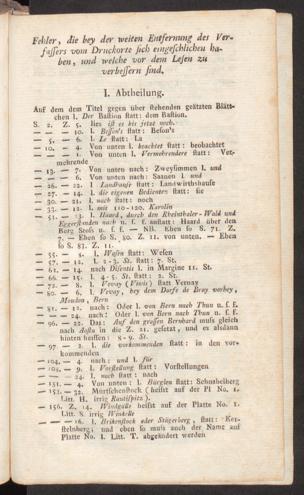 Fehler, die bey der weiten Entfernung des Ver-
fassers vom Druckorte sich eingeschlichen ha-
ben, und welche vor dem Lesen zu
verbessern sind.
I. Abtheilung.
Auf dem dem Titel gegen über stehenden geäzten Blätt-
chen l. Der Bastion statt: dem Bastion.
S. 2. Z. 5. lies ist es bis jetzt noch.
— — — 10. l. Besson's statt: Beson's
— 5. — 6. l. Le statt: La
— 10. — 4. Von unten l. beachtet statt: beobachtet
— — — 1. Von unten l. Vermehrendere statt: Ver-
mehrende
— 13. — 7. Von unten nach: Zweysimmen l. und
— — — 6. Von unten nach: Saanen l. und
— 26. — 22. l. Landhause statt: Landwirthshause
— 27. — 14. l. die eigenen Bedienten statt: sie
— 30. — 21. l. nach statt: noch
— 33. — 12. l. mit 110-120. Karolin
— 51. — 13. l. Haard, durch den Rheinthaler-Wald und
Eggerstanden nach u. s. f. anstatt: Haard über den
Berg Stoss u. s. f. — NB. Eben so S. 71. Z.
7. — Eben so S. 50. Z. 11. von unten. — Eben
so S. 83. Z. 11.
— 55. — l. Wasen statt: Wesen
— 57. — 12. l. 2-3. St. statt: 7. St.
— 61. — 14. nach Disentis l. in Margine 11. St.
— 66. — 15. l. 4-5. St. statt: 2. St.
— 72. — 8. l. Vevay (Vivis) statt Vernay
— 80. — 6. l. Vevay, bey dem Dorfe de Bray vorbey,
Moudon, Bern
— 81. — 12. nach: Oder l. von Bern nach Thun u. s. f.
— — — 24. nach: Oder l. von Bern nach Thun u. s. f.
— 96. — 22. Das: Auf den grossen Bernhard muss gleich
nach Aosta in die Z. 21. gesetzt, und es alsdann
hinten heissen: 8-9. St.
— 97. — 2. l. die vorkommenden statt: in den vor-
kommenden
— 104. — 4. nach: und l. für
— 104. — 9. l. Vorstellung statt: Vorstellungen
— — — 24. l. noch statt: nach
— 151. — 4. Von unten: l. Bürglen statt: Schnabelberg
— 153. — 32. Mürtschenstock (heisst auf der Pl No. 1.
Litt. H. irrig Rautispitz).
— 156. Z. 14. Windgälle heisst auf der Platte No. 1.
Litt. S. irrig Winkelle
— — — 16. l. Bristenstock oder Stägerberg, statt: Ker-
stelnberg; und eben so muss auch der Name auf
Platte No. 1. Litt. T. abgeändert werden